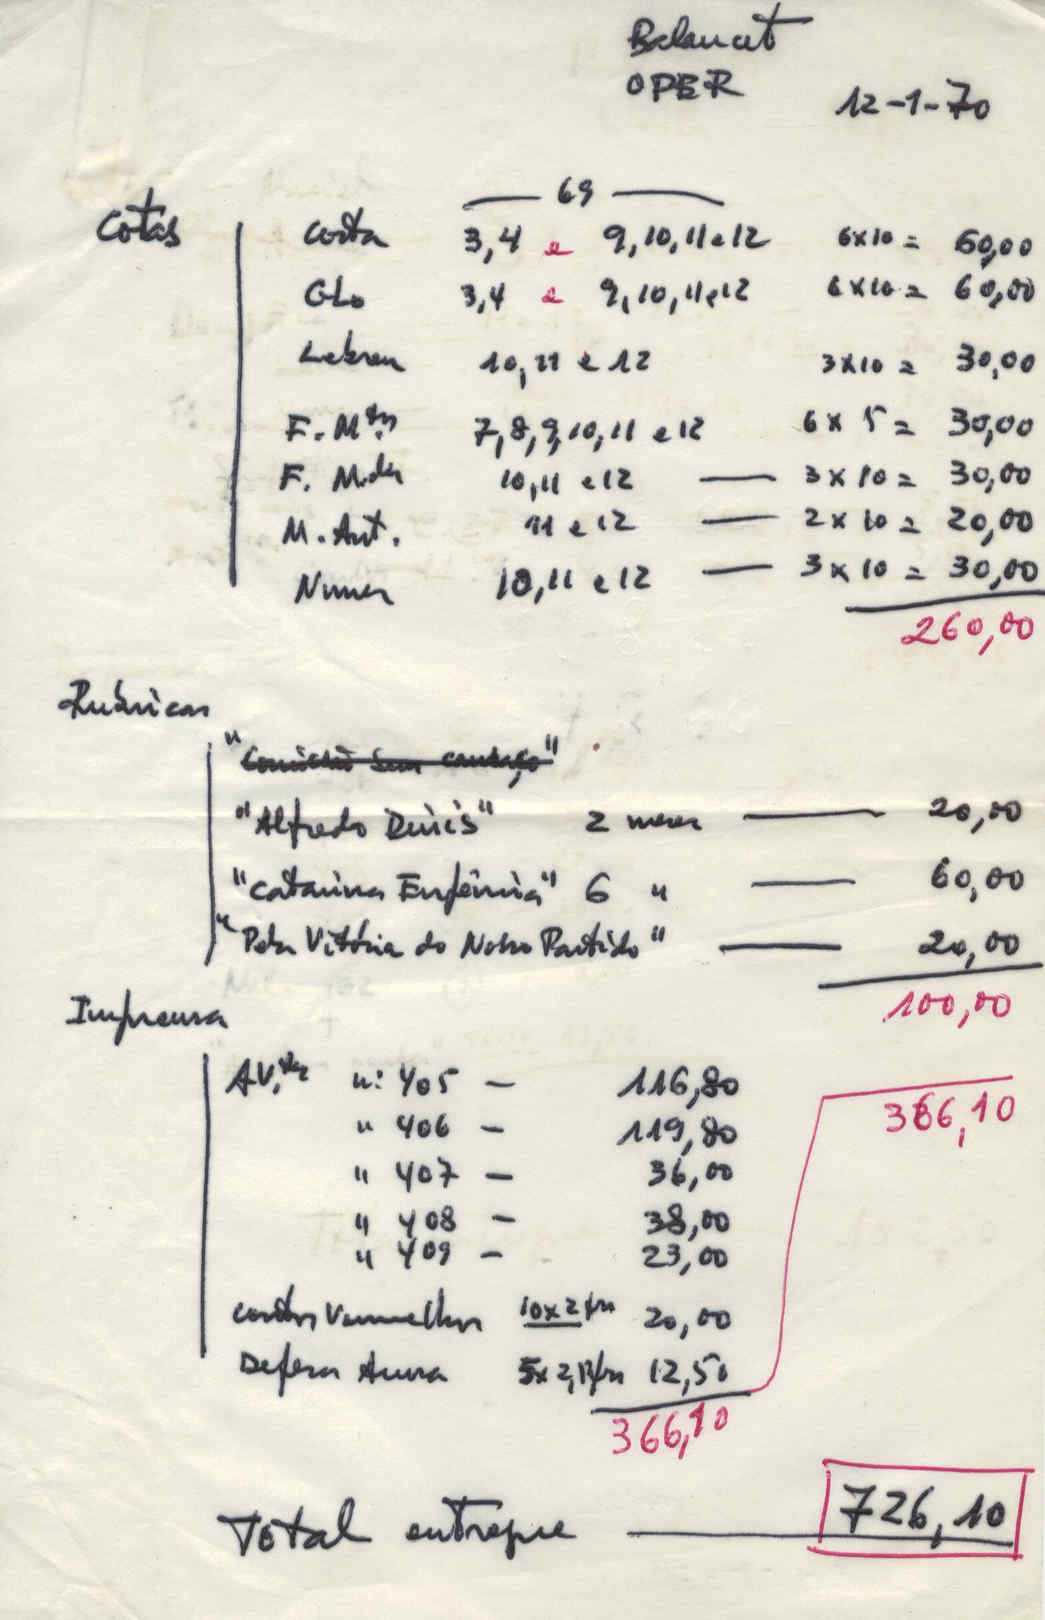 Balancet
OPER
12-1-70
69
Cotas
Costa 3,4 e 9,10,11 e 12 6x10 = 60,00
GLo 3,4 e 9,10,11 e 12 6x10 = 60,00
10,11 e 12 3x10 = 30,00
F. M 7,8,9,10,11 e 12 6 x 5 = 30,00
F. M. 10,11 e 12 — 3 x 10 = 30,00
M. Ant. 11 e 12 — 2 x 10 = 20,00
Nunes 10,11 e 12 — 3 x 10 = 30,00
260,00
Rubricas
"Alfredo Dinis" 2 meses — 20,00
"Catarina Eufémia" 6 " — 60,00
"Pela Vitória do Nosso Partido" — 20,00
100,00
Imprensa
AV. nº 405 — 116,80
" 406 — 119,80
" 407 — 36,00
" 408 — 38,00
" 409 — 23,00
Vermelhos 10x2 20,00
Defesa Acusa 5x 12,50
366,10
366,10
Total entregue — 726,10